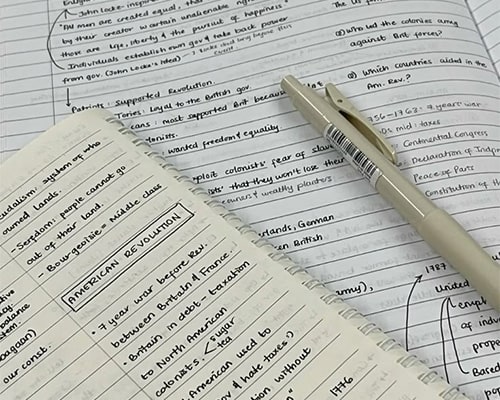 John Locke-inspir
"All men are created equal, that
by their creator w certain unalienable
those are life, liberty & the pursuit of happiness"
Individuals establish own gov & take back power
from gov. (John Locke's idea)
Patriots: Supported Revolution.
Tories: Loyal to the British gov.
cans: most supported Brit because
lonists.
wanted freedom & equality.
xploit colonists' fear of slave
ists' that they won't lose their
owners & wealthy planters
erlands, German
en British
rmy),
② Who led the colonies army
against Brit forces?
③ Which countries aided in the
Am. Rev.?
756-1763: 7 years' war
0s mid: taxes
Continental Congress
Declaration of Indep
Peace of Paris
Constitution of th
1787
United
emph
of indiv
prope
Based
po
eudalism: system of who
owned lands.
- Serfdom: people cannot go
out of their land.
- Bourgeoisie = Middle class
tive
balance
stem.
our const.
AMERICAN REVOLUTION
* 7 year war before Rev.
between Britain & France.
Britain in debt - taxation
to North American
colonists. sugar
tea
American used to
gov & hate taxes)
tion without
1776